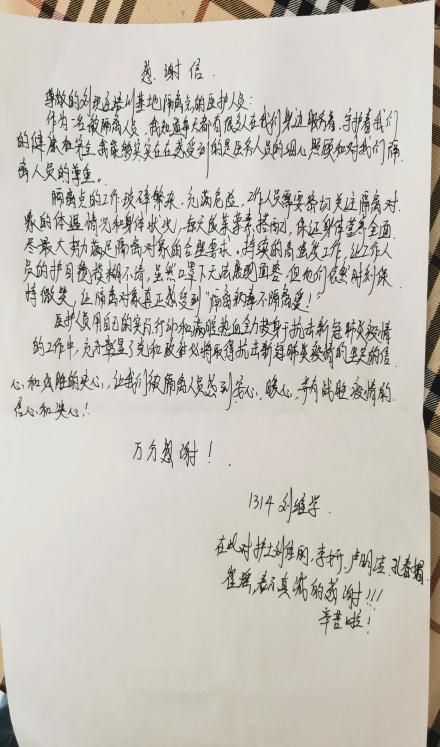 感谢信
尊敬的刘家连培训基地隔离点的医护人员：
作为一名被隔离人员，我知道每天都有很多人在我们身边服务着，守护着我们
的健康和安全，我能够实实在在感受到的是医务人员的细心照顾和对我们隔
离人员的尊重。
隔离点的工作琐碎繁杂，充满危险，工作人员需要密切关注隔离对
象的体温情况和身体状况，每天饭菜荤素搭配，保证身体营养全面
尽最大努力满足隔离对象的合理要求。持续的高强度工作，让工作人
员的护目镜模糊不清，虽然口罩下无法展现面容，但他们依然时刻保
持微笑，让隔离对象真正感受到“隔离病毒不隔离爱！”
医护人员用自己的实际行动和满腔热血全力投身于抗击新冠肺炎疫情
的工作中，充分彰显了党和政府必将取得抗击新冠肺炎疫情的坚定的信
心和必胜的决心，让我们被隔离人员感到安心，暖心，要有战胜疫情的
信心和决心！
万分感谢！
1314 刘维学
在此对护士刘佳丽，李妍，卢明洁，孔春媚
崔瑶，表示真诚的感谢！！！
辛苦啦！